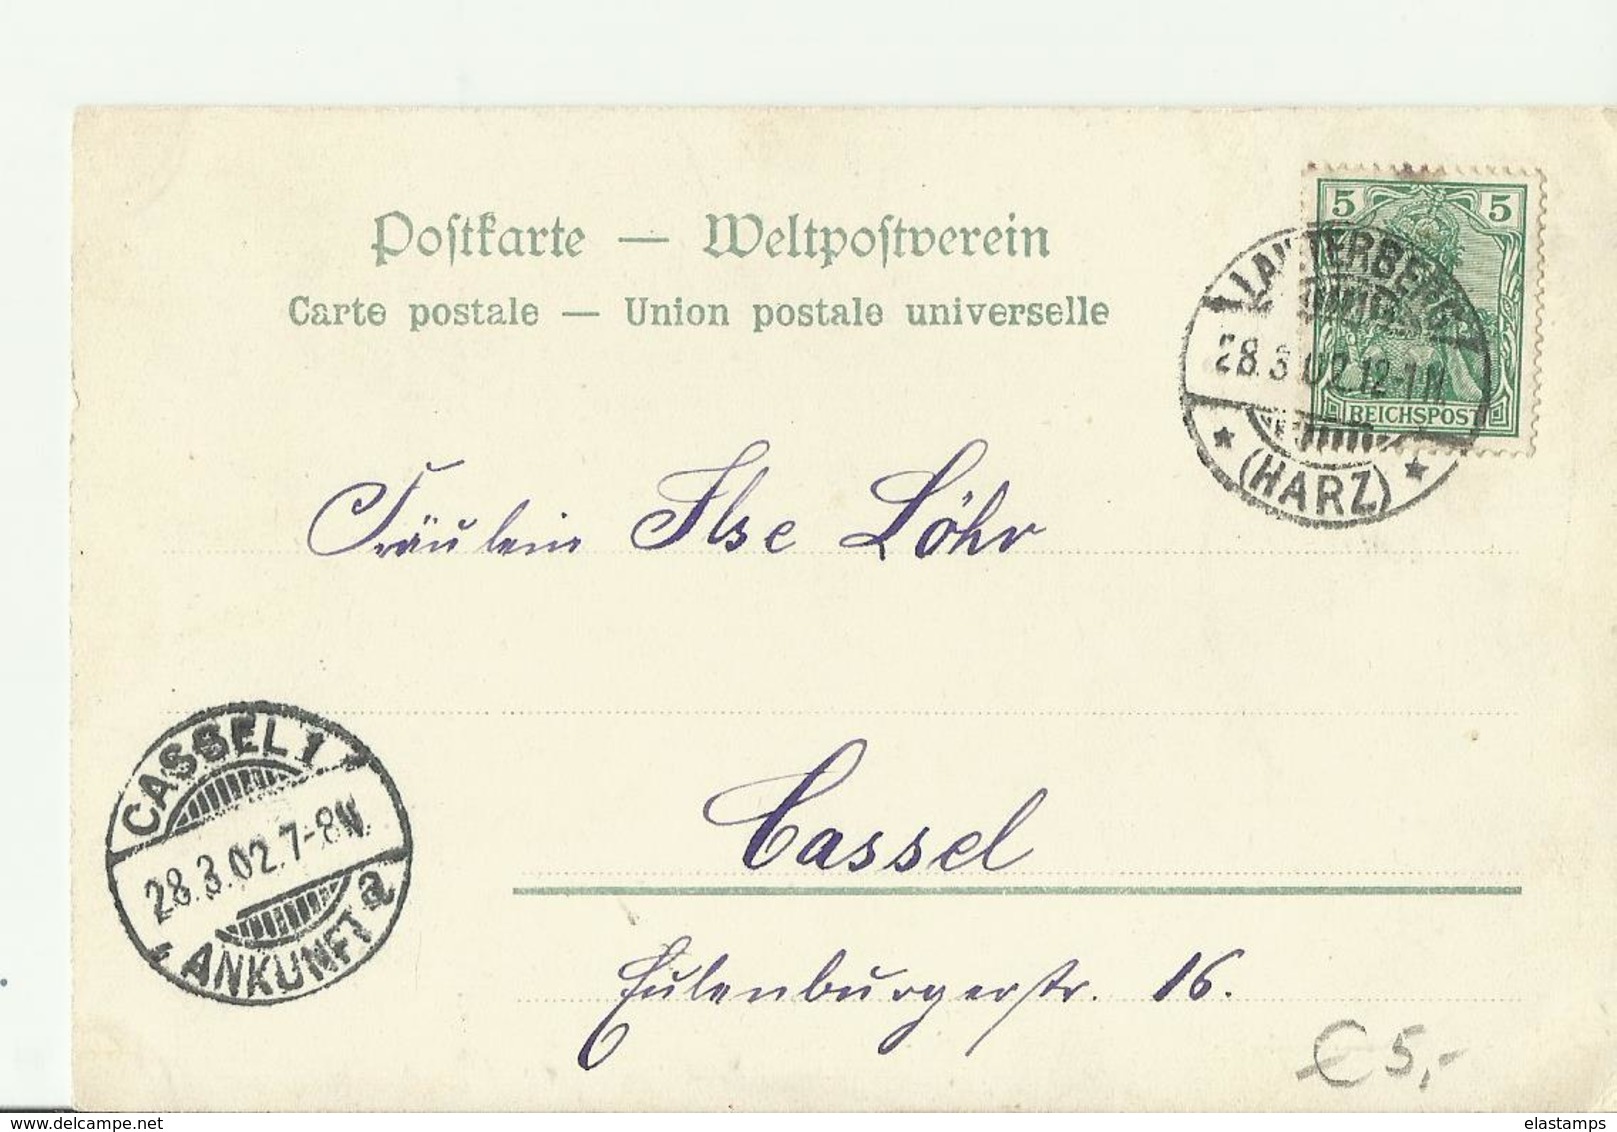 Postkarte — Weltpostverein
Carte postale — Union postale universelle
5 5
REICHSPOST
LAUTERBERG
28.3.02.12-1N.
(HARZ)
Fräulein Ilse Löhr
CASSEL 1
28.3.02.7-8N.
ANKUNFT a
Cassel
Eulenburgerstr. 16.
€ 5,-
delcampe.net
elastamps